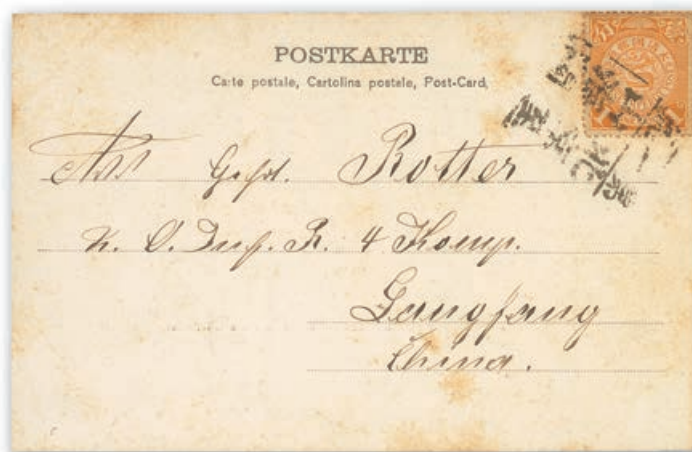 POSTKARTE
Carte postale, Cartolina postale, Post-Card,
Gefrt. Rotter
K. O. Inf. R. 4 Komp.
Langfang
China.